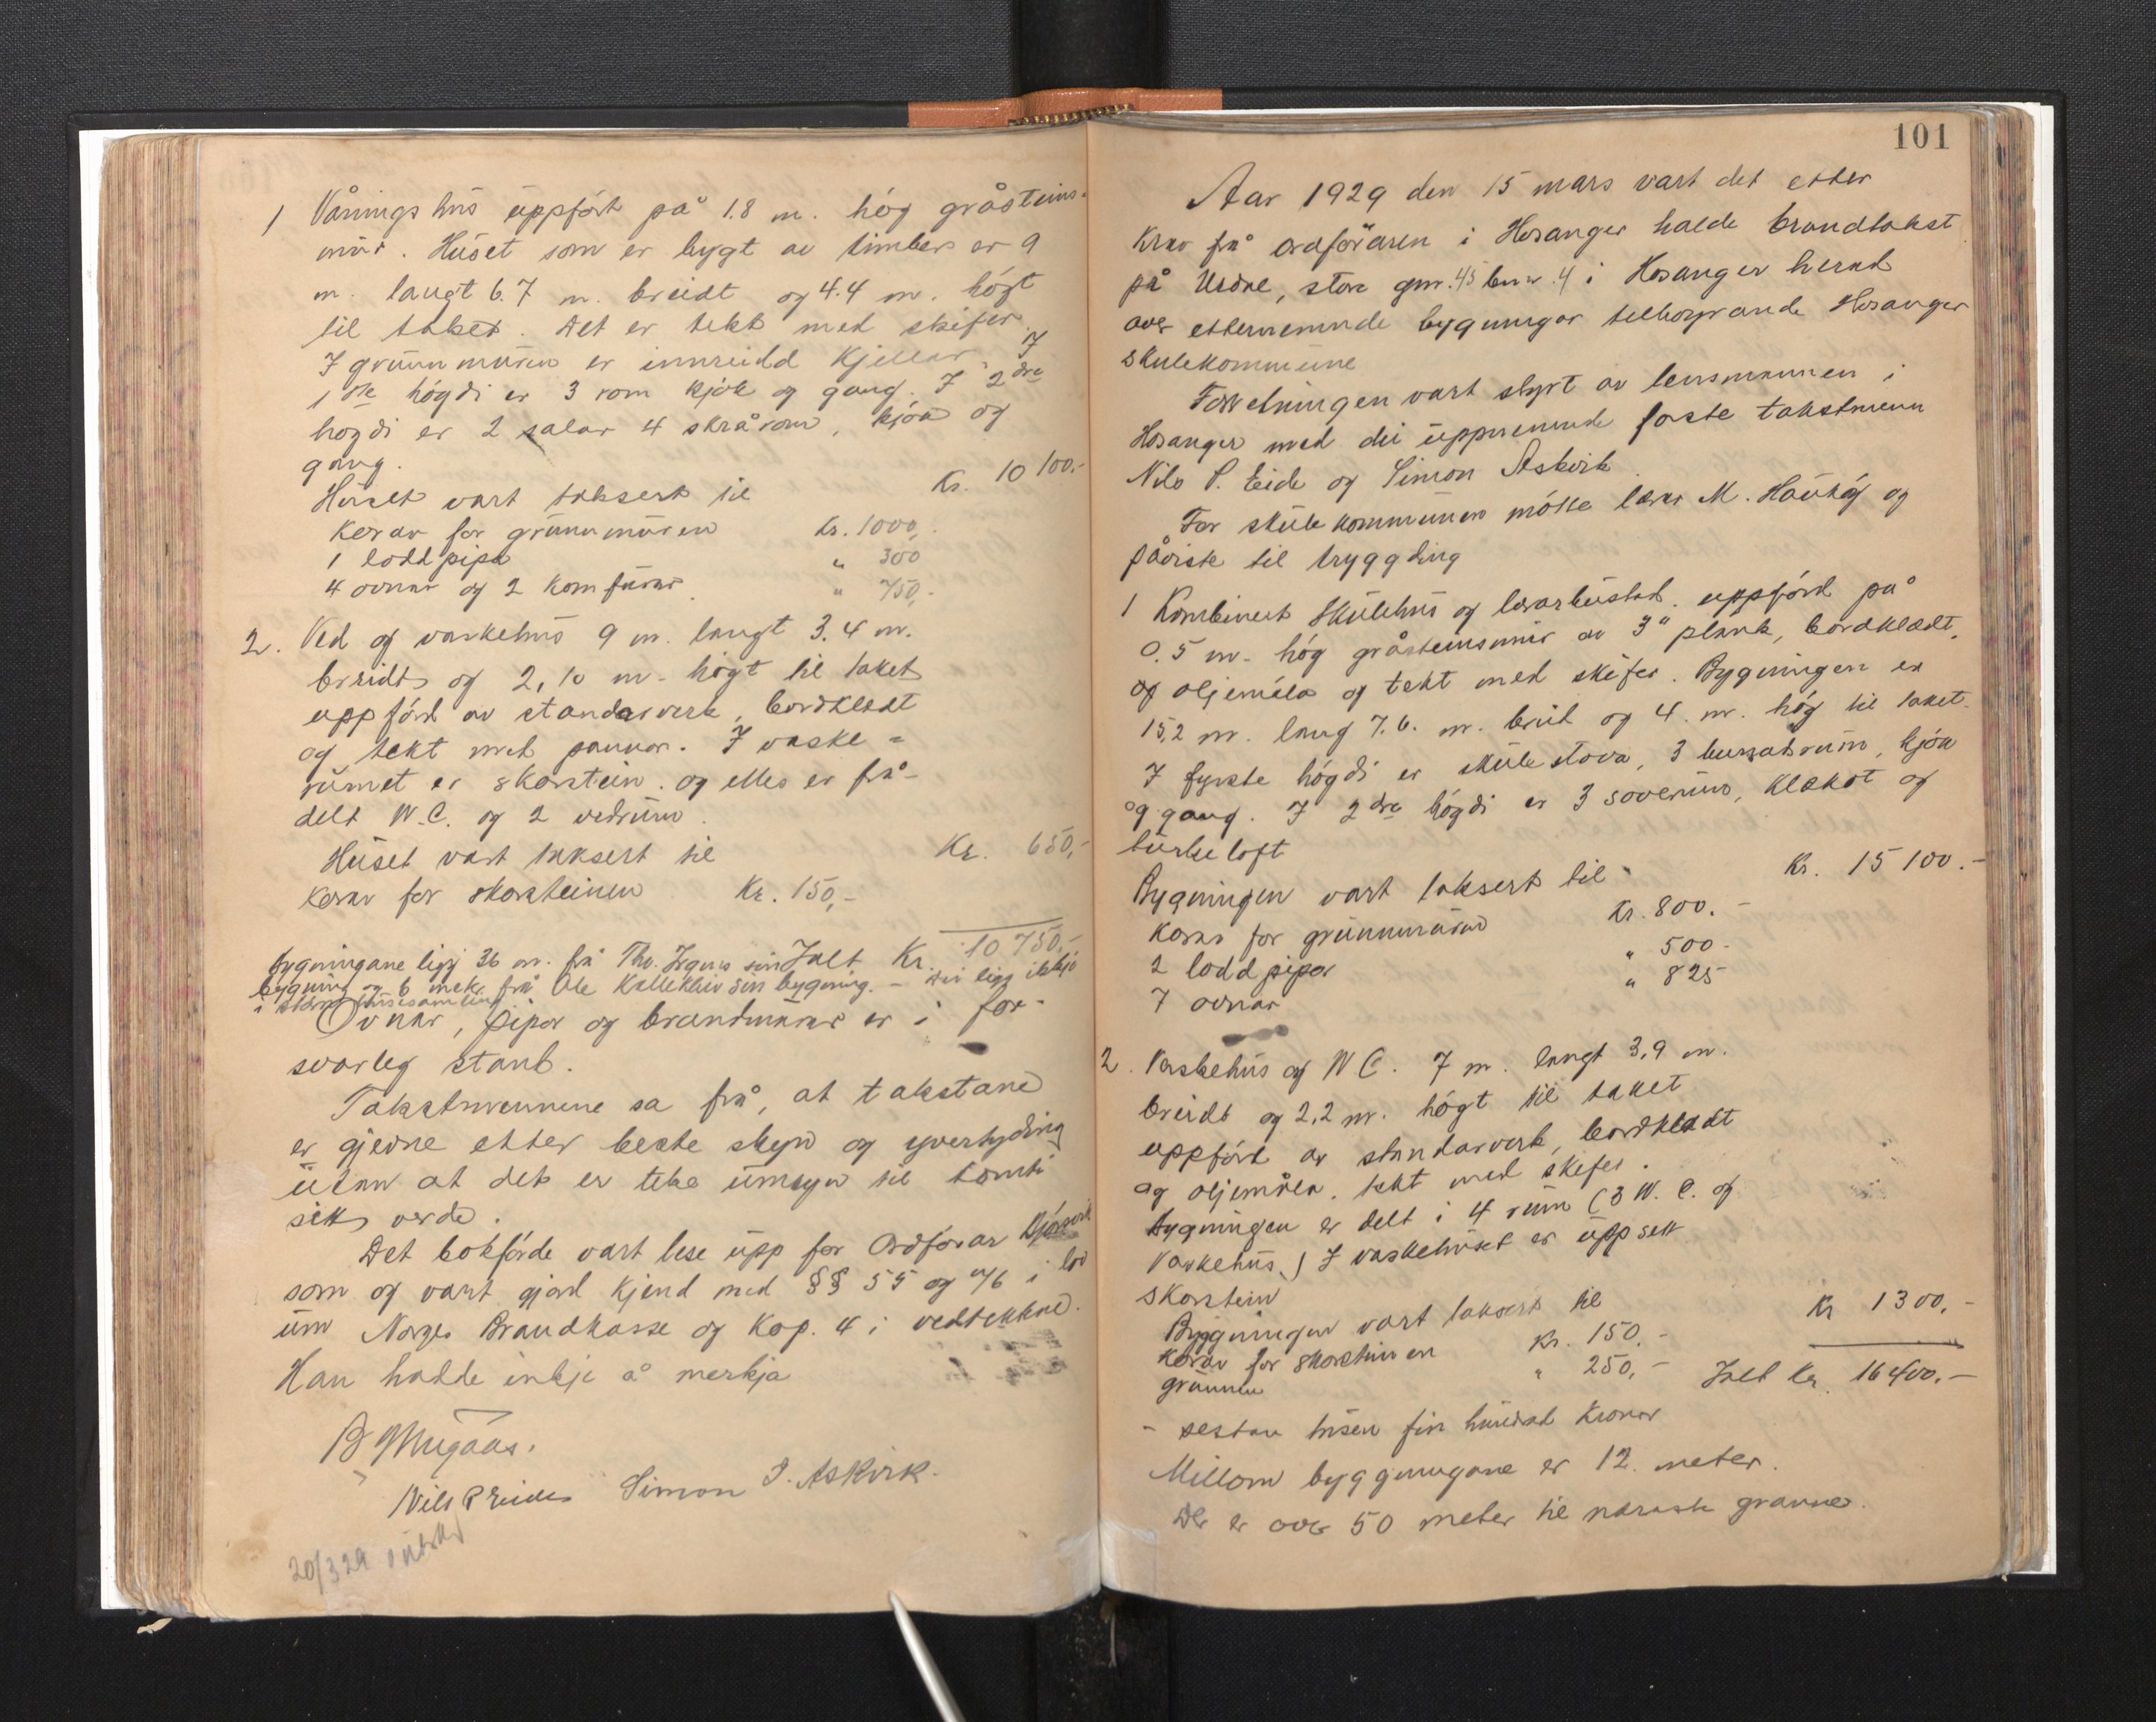 1 Våningshus uppfört på 1.8 m. hög gråsteins-
mur. Huset som er bygt av timber er 9
m. langt 6.7 m. breidt og 4.4 m. högt
til taket. Det er tekt med skifer.
I grunnmuren er innreidd kjellar. I
1ste högdi er 3 rom kjök og gang. I 2dre
högdi er 2 salar 4 skrårom, kjök og
gang.
Huset vart taksert til Kr. 10 100.-
Korav for grunnmuren Kr. 1000,-
1 loddpipa " 300
4 ovnar og 2 komfurar " 750,-
2. Ved og vaskehus 9 m. langt 3.4 m.
breidt og 2,10 m. högt til taket
uppförd av standarverk, bordklædt
og tekt med pannor. I vaske-
rumet er skorstein. og elles er frå-
delt W.C. og 2 vedrum.
Huset vart taksert til Kr. 650,-
Korav for skorsteinen Kr. 150,-
Ialt Kr. 10 750,-
Bygningane ligg 36 m. frå Tho. sin
bygning og 6 mek. frå Ole Kallekleiv sin bygning. - Dei ligg ikkje
i större husesamling.
Ovnar, pipor og brandmurar er i for-
svarleg stand.
Takstmennene sa frå, at takstane
er gjevne etter beste skyn og yvertyding
utan at det er teke umsyn til tomti
sitt verde.
Det bokförde vart lese upp for Ordförar
som og vart gjord kjend med §§ 55 og 76 i lov
um Norges Brandkasse og Kap. 4 i vedtektene.
Han hadde inkje å merkja
B Mugaas.
Nils P Eide Simon I. Askvik.
20/3 29
101
Aar 1929 den 15 mars vart det etter
krav frå ordföraren i Hosanger halde brandtakst
på Usdne, store gnr. 45 bnr. 4 i Hosanger herad
over etternemnde bygningar tilhoyrande Hosanger
skulekommune
Forretningen vart styrt av lensmannen i
Hosanger med dei uppnemnde faste takstmenn
Nils P. Eide og Simon Askvik.
For skulekommunen mötte lærar M. Hauköy og
påviste til tryggding
1 Kombinert skulehus og lærarbustad. uppförd på
0.5 m. hög gråsteinsmur av 3" plank, bordklædt,
og oljemåla og tekt med skifer. Bygningen er
15,2 m. lang 7.6. m. breid og 4. m. hög til taket.
I fyrste högdi er skulestova, 3 bustadrum, kjök
og gang. I 2dre högdi er 3 soverum, klækot og
turkeloft
Bygningen vart taksert til Kr. 15 100.-
Korav for grunnmuren Kr. 800.-
2 loddpipor " 500-
7 ovnar " 825
2. Vaskehus og W C. 7 m. langt 3,9 m.
breidt og 2,2 m. högt til taket
uppfört av standarverk, bordklædt
og oljemåla. tekt med skifer.
Bygningen er delt i 4 rum (3 W. C. og
Vaskehus.) I vaskehuset er uppsett
skorstein
Byggningen vart taksert til Kr 1300,-
Korav for skorsteinen Kr. 150.-
grunnen " 250,- Ialt Kr. 16400.-
- sekstan tusen fir hundrad kronor
Millom byggningane er 12 meter.
Det er over 50 meter til næraste granne.